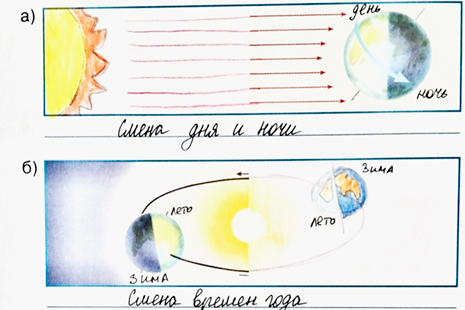 а)
день
ночь
Смена дня и ночи
б)
зима
лето
лето
зима
Смена времен года